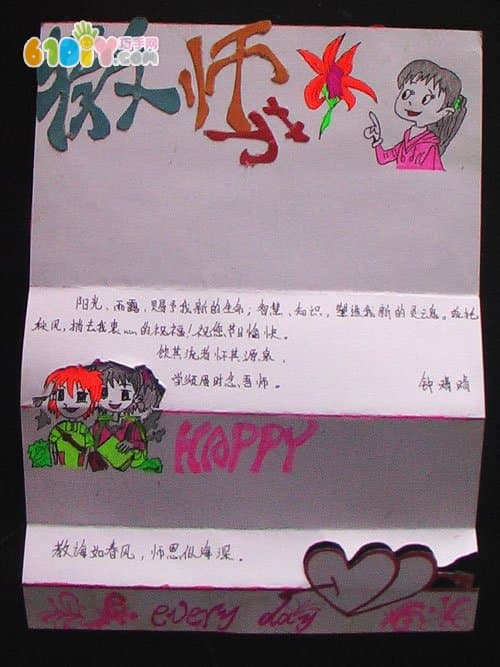 61DIY 巧手网
师
阳光、雨露,赐予我新的生命;智慧、知识,塑造我新的灵魂。托
秋风,捎去我衷心的祝福!祝您节日愉快。
饮其流者怀其源泉,
学成时念吾师。
HAPPY
教诲如春风,师恩似海深。
every day